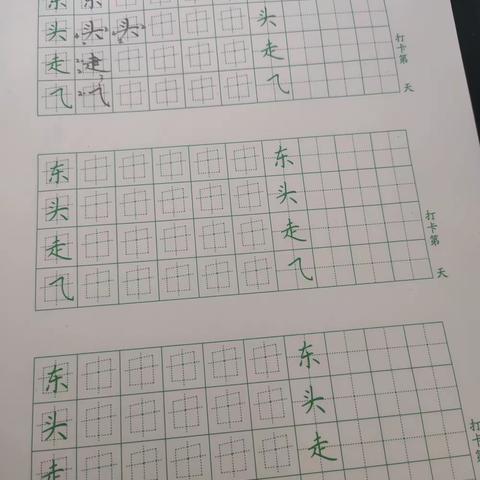 东 东
头 头 头 头
走 走 走
飞 飞 飞
打卡第 天
东 东
头 头
走 走
飞 飞
打卡第 天
东 东
头 头
走 走
打卡第